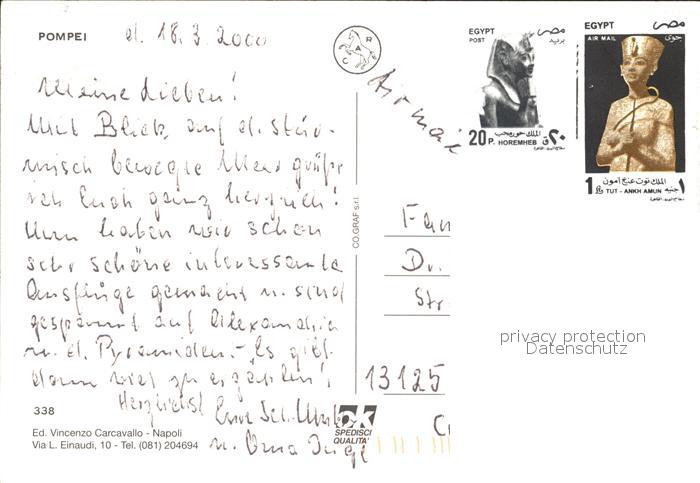 POMPEI
d. 18.3.2000
Meine Lieben!
Mit Blick auf d. stür-
misch bewegte Meer grüße
ich Euch ganz herzlich!
Nun haben wir schon
sehr schöne interessante
Ausflüge gemacht u. sind
gespannt auf Alexandria
u. d. Pyramiden.- Es gibt
dann viel zu erzählen!
Herzlichst Eure
u. Oma Inge
338
Ed. Vincenzo Carcavallo - Napoli
Via L. Einaudi, 10 - Tel. (081) 204694
CAR
CO.GRAF s.r.l.
OK
SPEDISCI
QUALITA'
Air mail
EGYPT مصر
POST بريد
20 P. ٢٠ ق
الملك حور محب
HOREMHEB
EGYPT مصر
AIR MAIL جوى
الملك توت عنخ آمون
1 £ جنيه ١
TUT - ANKH AMUN
Fam
Dr.
Str.
13125
privacy protection
Datenschutz